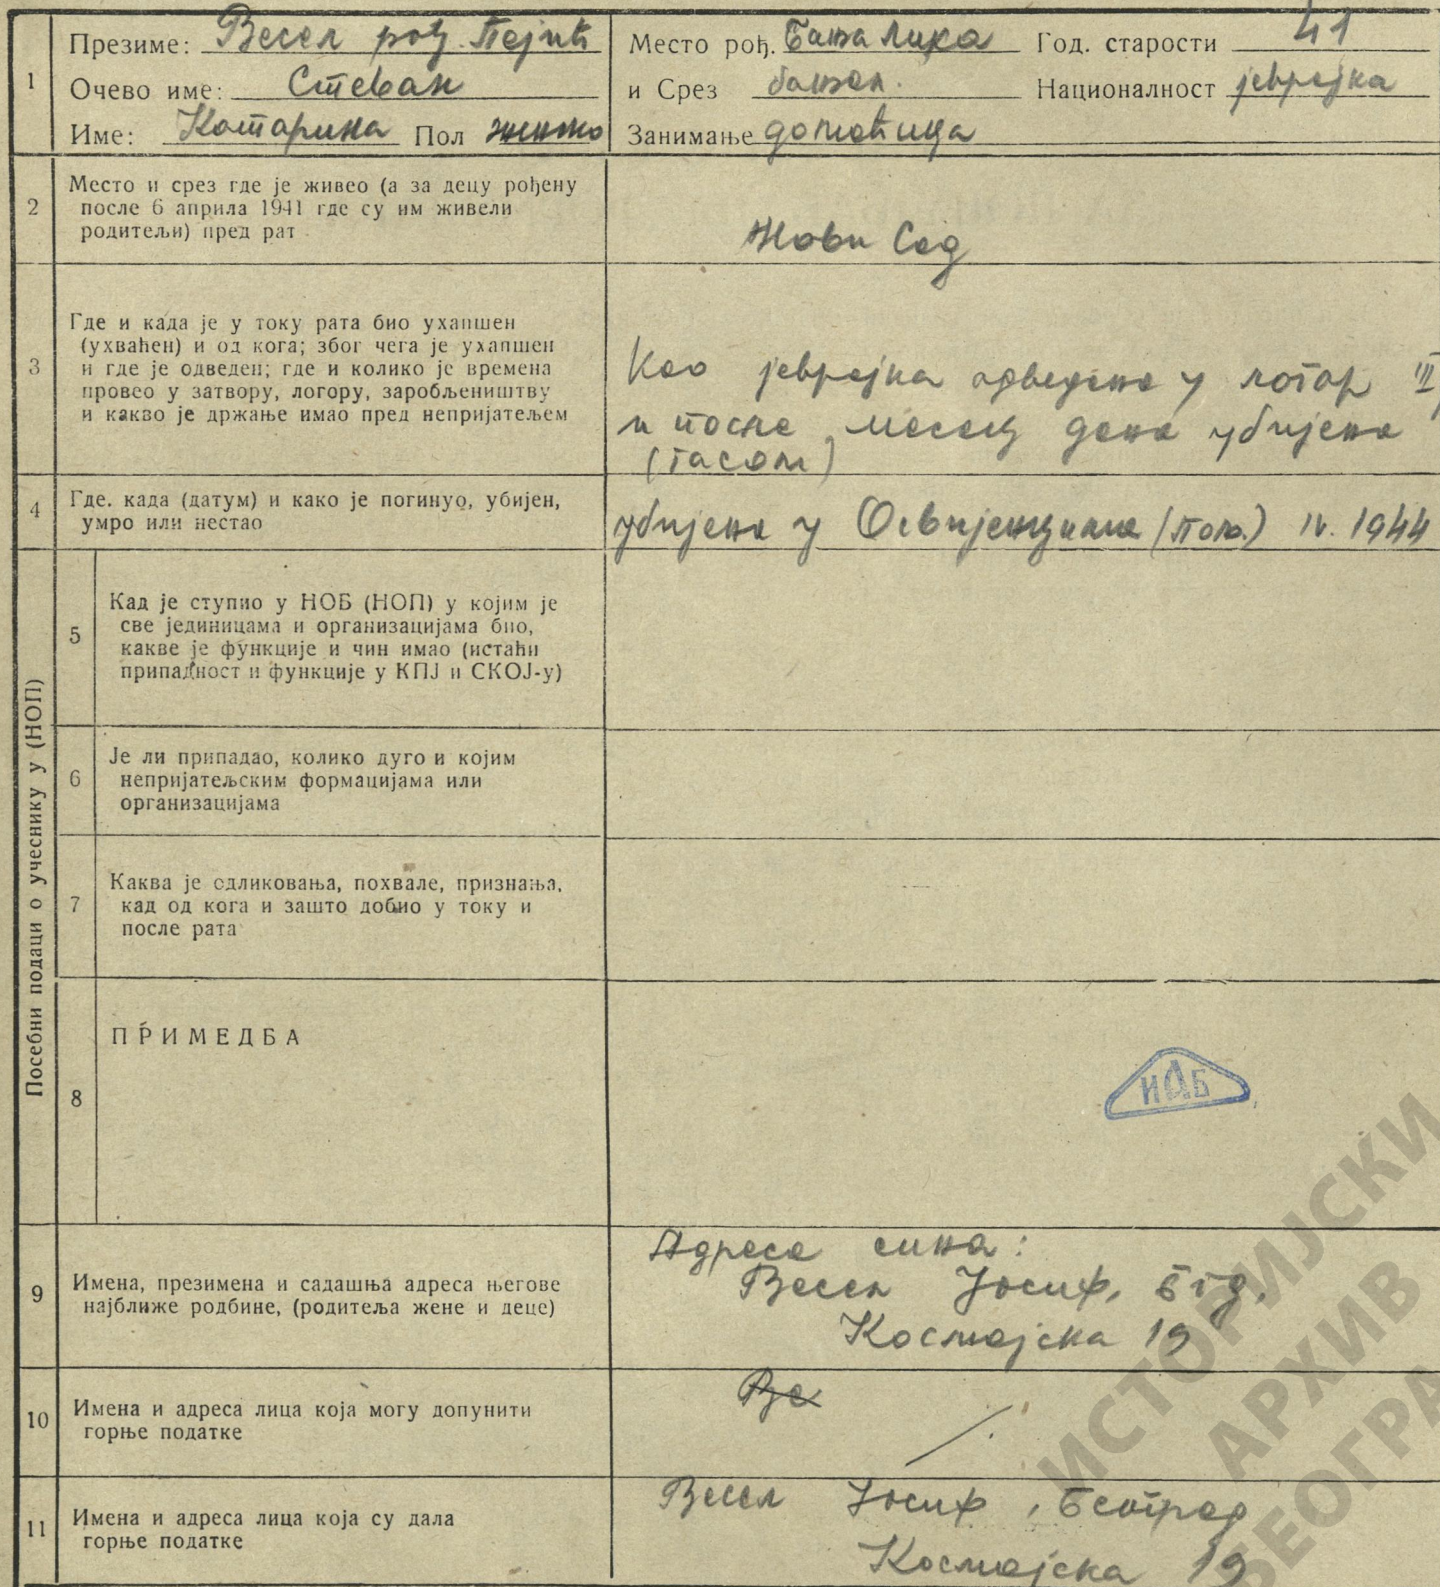 1
Презиме: Весел рођ. Пејић
Очево име: Стеван
Име: Катарина Пол женско
Место рођ. Бања Лука Год. старости 41
и Срез бањал. Националност јеврејка
Занимање домаћица
2
Место и срез где је живео (а за децу рођену
после 6 априла 1941 где су им живели
родитељи) пред рат
Нови Сад
3
Где и када је у току рата био ухапшен
(ухваћен) и од кога; због чега је ухапшен
и где је одведен; где и колико је времена
провео у затвору, логору, заробљеништву
и какво је држање имао пред непријатељем
Као јеврејка одведена у логор III
и после месец дана убијена
(гасом)
4
Где, када (датум) и како је погинуо, убијен,
умро или нестао
убијена у Освијенцима (Пољ.) IV. 1944
Посебни подаци о учеснику у (НОП)
5
Кад је ступио у НОБ (НОП) у којим је
све јединицама и организацијама био,
какве је функције и чин имао (истаћи
припадност и функције у КПЈ и СКОЈ-у)
6
Је ли припадао, колико дуго и којим
непријатељским формацијама или
организацијама
7
Каква је одликовања, похвале, признања,
кад од кога и зашто добио у току и
после рата
8
ПРИМЕДБА
ИАБ
9
Имена, презимена и садашња адреса његове
најближе родбине, (родитеља жене и деце)
Адреса сина:
Весел Јосиф, Бгд.
Космајска 19
10
Имена и адреса лица која могу допунити
горње податке
Ве
11
Имена и адреса лица која су дала
горње податке
Весел Јосиф, Београд
Космајска 19
ИСТОРИЈСКИ
АРХИВ
БЕОГРА